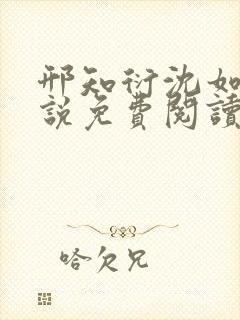 邢知衍沈如
說免費閱讀
哈欠兄